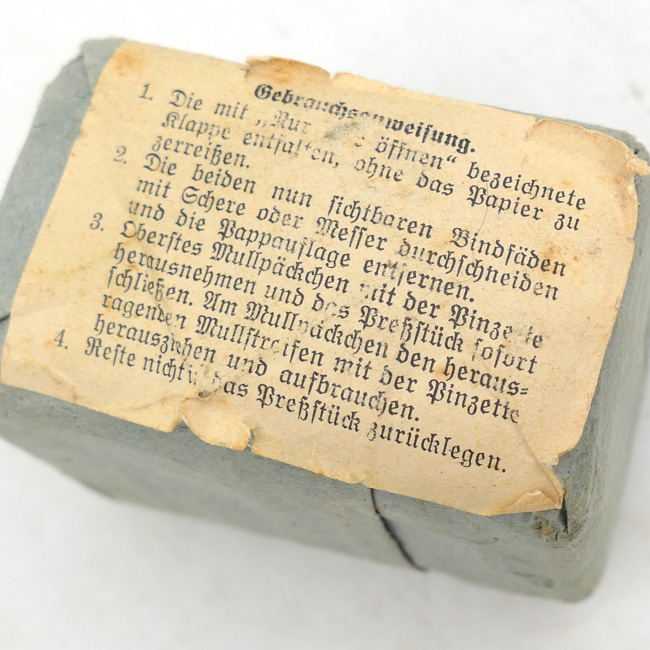 Gebrauchsanweisung.
1. Die mit „Nur öffnen“ bezeichnete
Klappe entfalten, ohne das Papier zu
zerreißen.
2. Die beiden nun sichtbaren Bindfäden
mit Schere oder Messer durchschneiden
und die Pappauflage entfernen.
3. Oberstes Mullpäckchen mit der Pinzette
herausnehmen und das Preßstück sofort
schließen. Am Mullpäckchen den heraus-
ragenden Mullstreifen mit der Pinzette
herausziehen und aufbrauchen.
4. Reste nicht in das Preßstück zurücklegen.